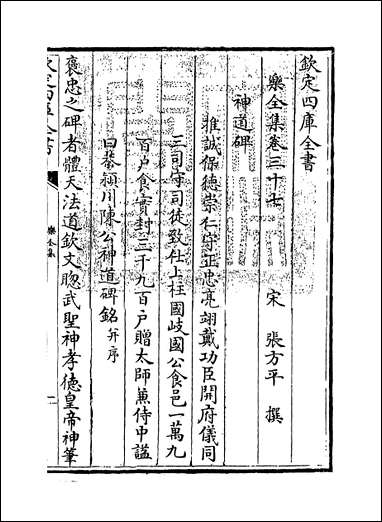 欽定四庫全書
樂全集卷三十七
宋 張方平 撰
神道碑
推誠保德崇仁守正忠亮翊戴功臣開府儀同
三司守司徒致仕上柱國岐國公食邑一萬九
百户食實封三千九百户贈太師兼侍中諡
曰恭潁川陳公神道碑銘并序
褒忠之碑者體天法道欽文聰武聖神孝德皇帝神筆
樂全集
一